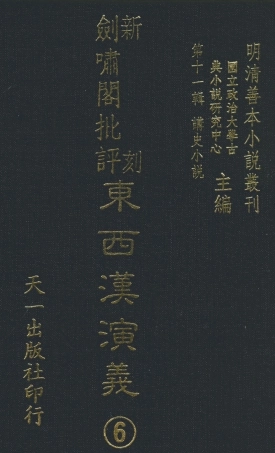 明清善本小說叢刊
國立政治大學古
典小說研究中心
主編
第十一輯 講史小說
新刻
劍嘯閣批評
東西漢演義
⑥
天一出版社印行